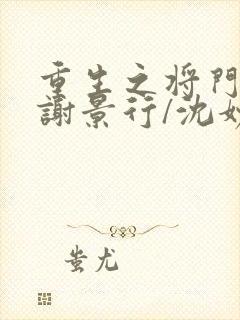 重生之将門
謝景行/沈妙
蚩尤